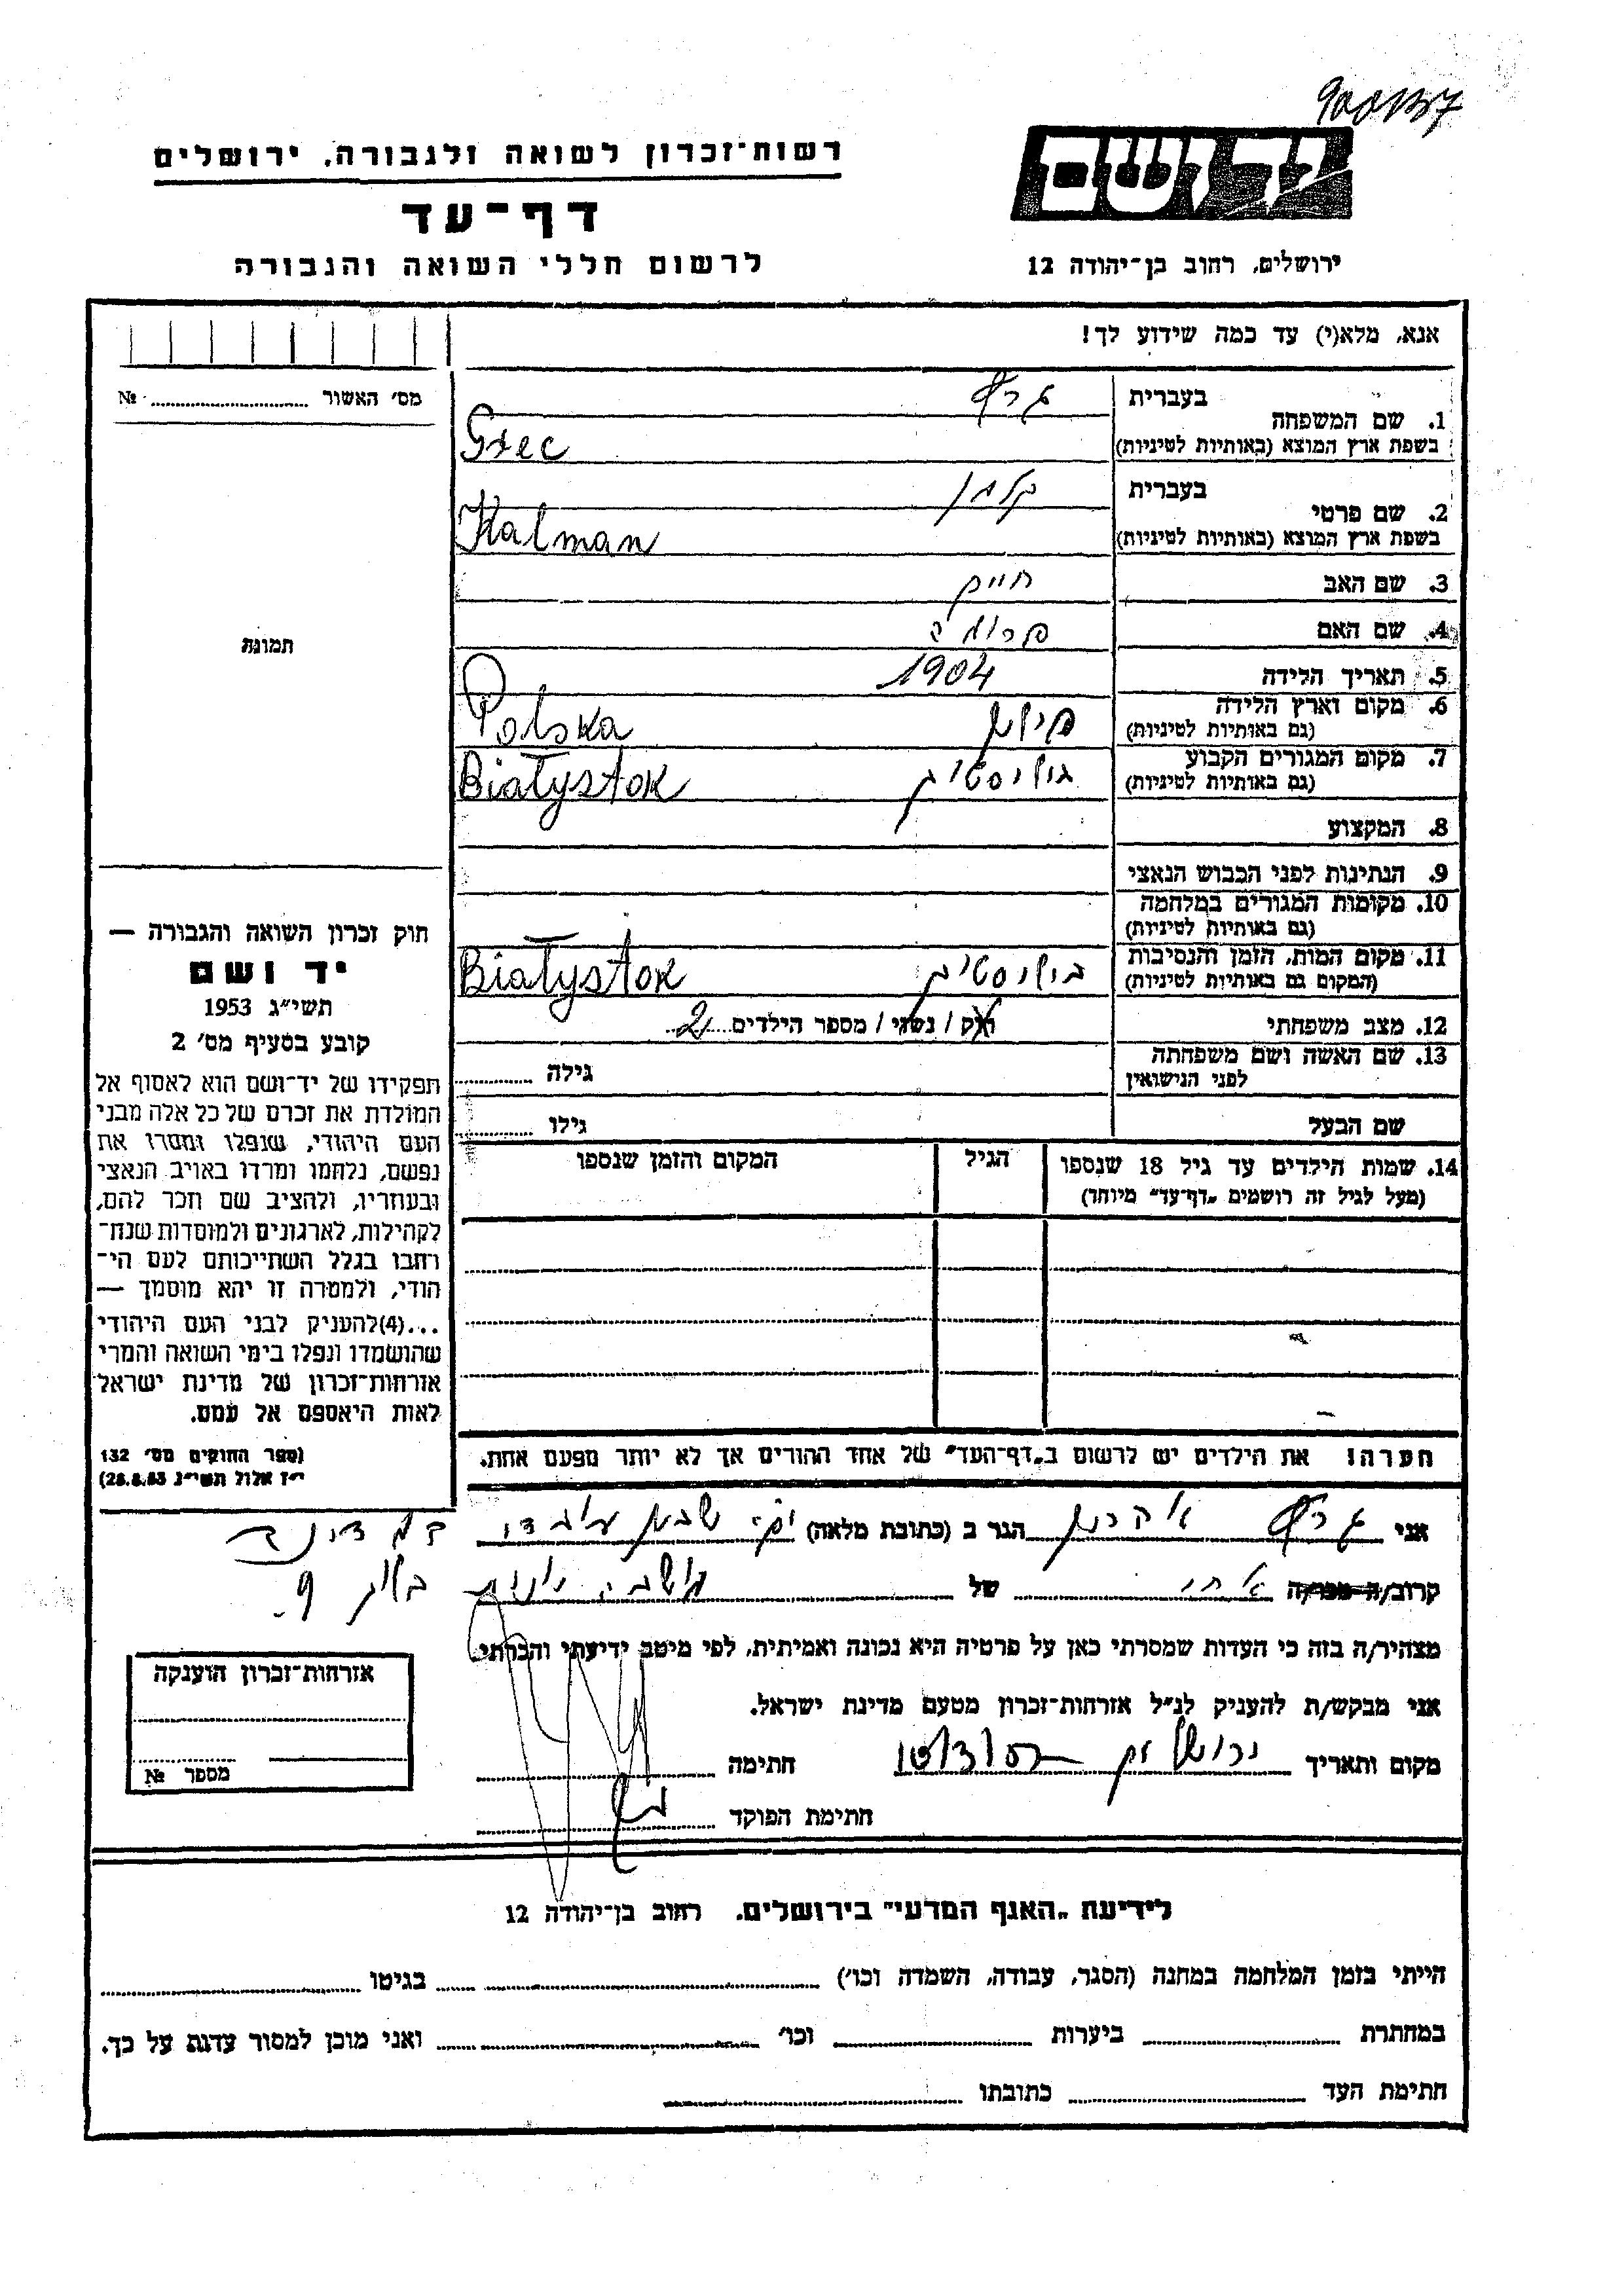 רשות־זכרון לשואה ולגבורה, ירושלים
דף־עד
לרשום חללי השואה והגבורה
יד ושם
ירושלים, רחוב בן־יהודה 12
אנא, מלא(י) עד כמה שידוע לך!
מס' האשור № 
1. שם המשפחה
בעברית
בשפת ארץ המוצא (באותיות לטיניות) Grec
2. שם פרטי
בעברית קלמן
בשפת ארץ המוצא (באותיות לטיניות) Kalman
3. שם האב חיים
4. שם האם
5. תאריך הלידה 1904
6. מקום וארץ הלידה פולין
(גם באותיות לטיניות) Polska
7. מקום המגורים הקבוע ביליסטוק
(גם באותיות לטיניות) Białystok
8. המקצוע
9. הנתינות לפני הכבוש הנאצי
10. מקומות המגורים במלחמה
(גם באותיות לטיניות)
11. מקום המות, הזמן והנסיבות
(המקום גם באותיות לטיניות) Białystok
12. מצב משפחתי רוק / נשוי / מספר הילדים 2
13. שם האשה ושם משפחתה
לפני הנישואין גילה
שם הבעל גילו
14. שמות הילדים עד גיל 18 שנספו
(מעל לגיל זה רושמים „דף־עד" מיוחד)
הגיל
המקום והזמן שנספו
הערה! את הילדים יש לרשום ב„דף־העד" של אחד ההורים אך לא יותר מפעם אחת.
תמונה
חוק זכרון השואה והגבורה —
יד ושם
תשי״ג 1953
קובע בסעיף מס' 2
תפקידו של יד־ושם הוא לאסוף אל
המולדת את זכרם של כל אלה מבני
העם היהודי, שנפלו ומסרו את
נפשם, נלחמו ומרדו באויב הנאצי
ובעוזריו, ולהציב שם וזכר להם,
לקהילות, לארגונים ולמוסדות שנח־
רבו בגלל השתייכותם לעם הי־
הודי, ולמטרה זו יהא מוסמך —
...(4)להעניק לבני העם היהודי
שהושמדו ונפלו בימי השואה והמרי
אזרחות־זכרון של מדינת ישראל
לאות היאספם אל עמם.
(ספר החוקים מס' 132
י״ז אלול תשי״ג 28.8.53)
אני אהרון הגר ב (כתובת מלאה)
קרוב/ה מכר/ה של
מצהיר/ה בזה כי העדות שמסרתי כאן על פרטיה היא נכונה ואמיתית, לפי מיטב ידיעתי והכרתי.
אני מבקש/ת להעניק לנ״ל אזרחות־זכרון מטעם מדינת ישראל.
מקום ותאריך ירושלים חתימה
חתימת הפוקד
אזרחות־זכרון הוענקה
מספר №
לידיעת „האגף המדעי" בירושלים, רחוב בן־יהודה 12
הייתי בזמן המלחמה במחנה (הסגר, עבודה, השמדה וכו') בגיטו
במחתרת ביערות וכו' ואני מוכן למסור עדות על כך.
חתימת העד כתובתו